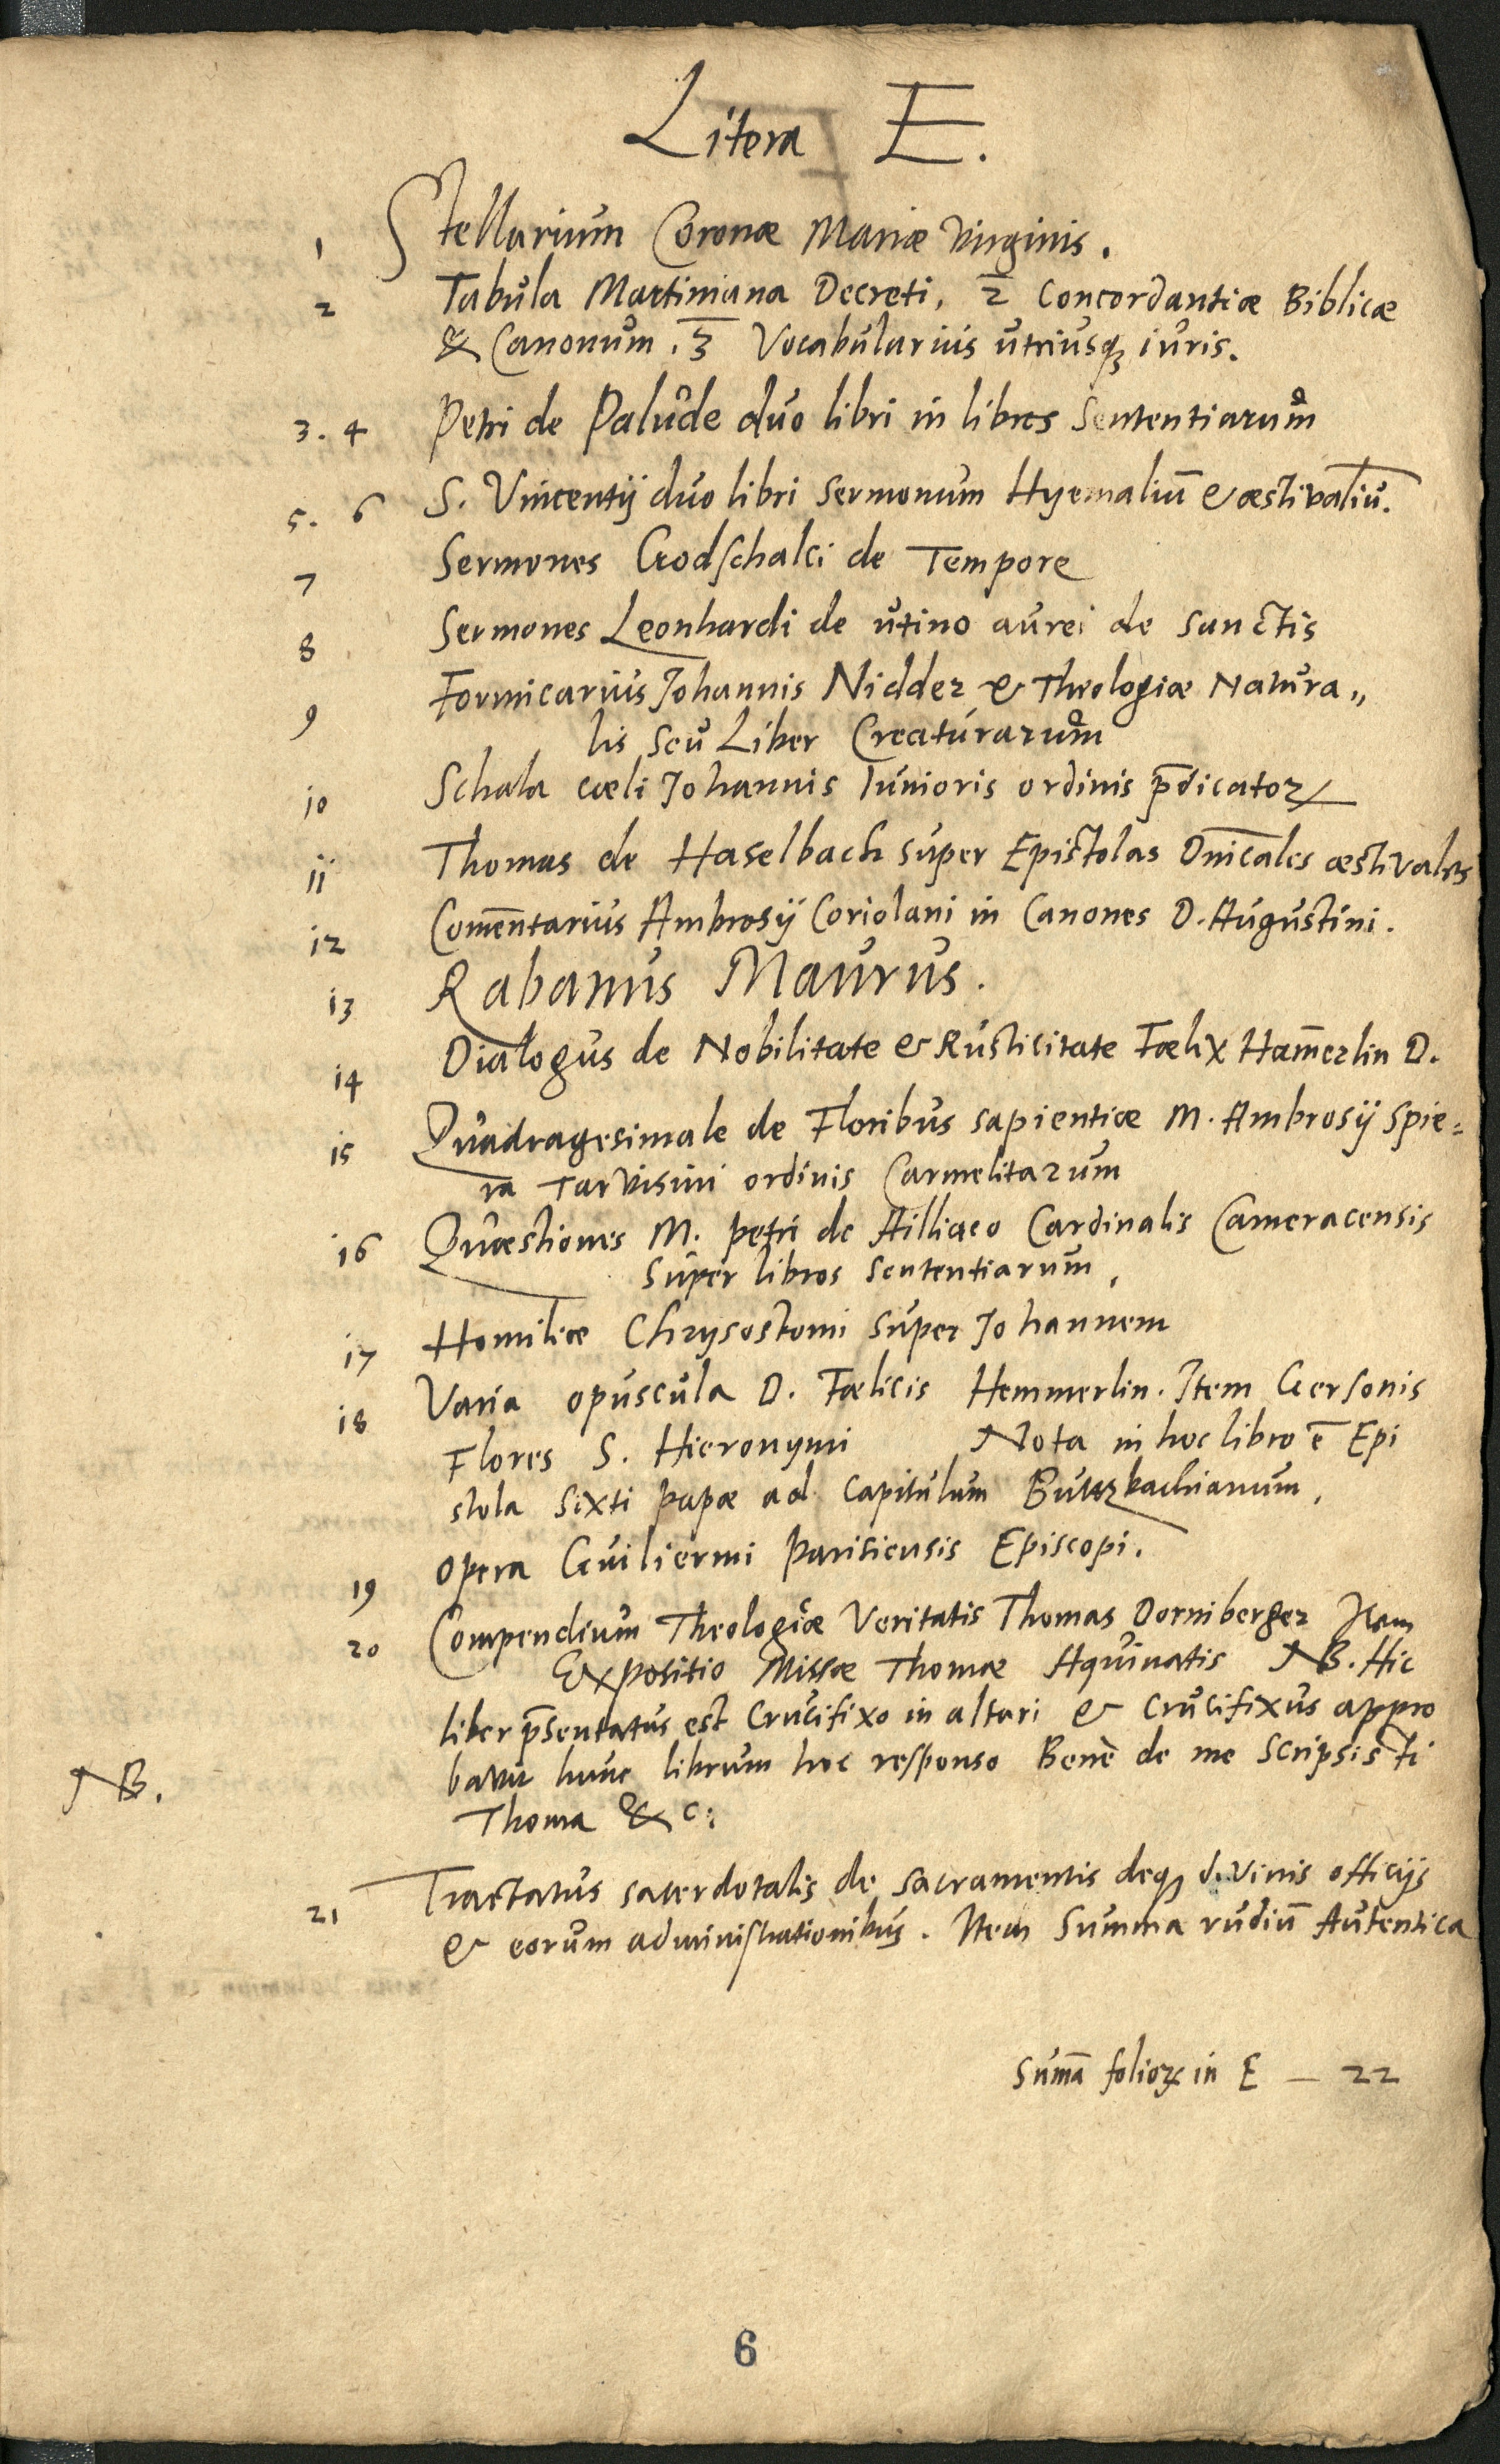 Litera E.
1 Stellarium Coronæ Mariæ Virginis.
2 Tabula Martiniana Decreti, 2 Concordantiæ Biblicæ
& Canonum. 3 Vocabularius utriusq₃ iuris.
3. 4 Petri de Palude duo libri in libros Sententiarum
5. 6 S. Vincentij duo libri Sermonum Hyemaliū & æstivaliū.
7 Sermones Godschalci de Tempore
8 Sermones Leonhardi de Utino aurei de Sanctis
9 Formicarius Johannis Nidder & Theologiæ Natura„
lis seu Liber Creaturarum
10 Schala cæli Johannis Iunioris ordinis p̄dicatoꝝ
11 Thomas de Haselbach super Epistolas Dn̄icales æstivales
12 Com̄entarius Ambrosij Coriolani in Canones D. Augustini.
13 Rabanus Maurus.
14 Dialogus de Nobilitate & Rusticitate Fælix Ham̄erlin D.
15 Quadragesimale de Floribus sapientiæ M. Ambrosij Spie=
ra Tarvisini ordinis Carmelitarum
16 Quæstiones M. Petri de Ailliaco Cardinalis Cameracensis
super libros Sententiarum,
17 Homiliæ Chrysostomi super Johannem
18 Varia opuscula D. Fælicis Hemmerlin. Item Gersonis
Flores S. Hieronymi Nota in hoc libro ē Epi
stola Sixti Papæ ad Capitulum Butzbachianum,
19 Opera Guiliermi Parisiensis Episcopi.
20 Compendium Theologicæ Veritatis Thomas Dorniberger Item
Expositio Missæ Thomæ Aquinatis NB. Hic
liber p̄sentatus est Crucifixo in altari & Crucifixus appro
NB. bavit hunc librum hoc responso Bene de me scripsisti
Thoma & c:
21 Tractatus sacerdotalis de sacramentis deq₃ divinis officijs
& eorum administrationibus. Item Summa rudiū Autentica
Sum̄a folioꝝ in E — 22
6